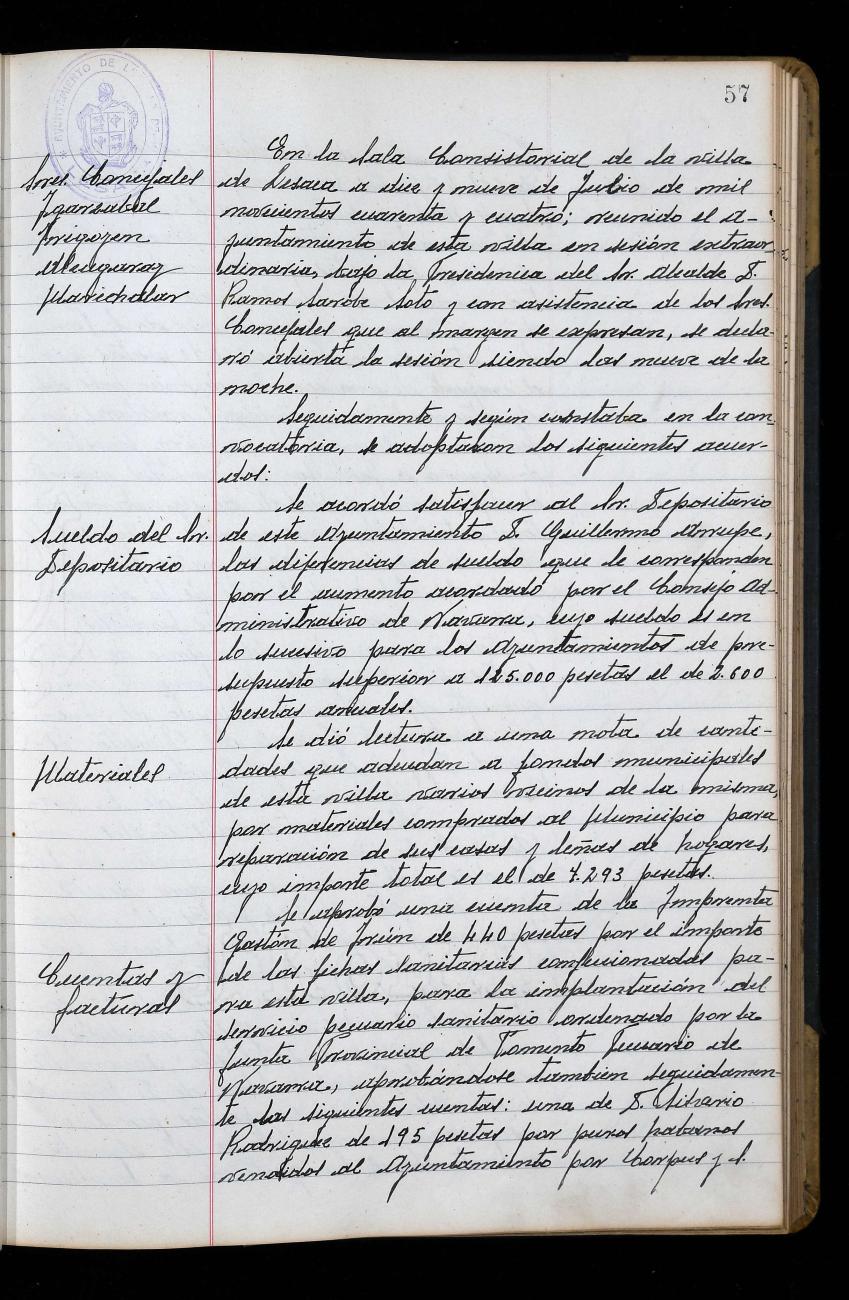 57
AYUNTAMIENTO DE
Sres. Concejales
Igarzabal
Irigoyen
Almagaraz
Marichalar
En la Sala Consistorial de la villa
de Lesaca a diez y nueve de Julio de mil
novecientos cuarenta y cuatro; reunido el A-
yuntamiento de esta villa en sesión extraor
dinaria, bajo la Presidencia del Sr. Alcalde D.
Ramos Sarobe Soto y con asistencia de los Sres.
Concejales que al margen se expresan, se decla-
ró abierta la sesión siendo las nueve de la
noche.
Seguidamente y según constaba en la con-
vocatoria, se adoptaron los siguientes acuer-
dos:
Sueldo del Sr.
Depositario
Se acordó satisfacer al Sr. Depositario
de este Ayuntamiento D. Guillermo Arrupe,
las diferencias de sueldo que le corresponden
por el aumento acordado por el Consejo Ad-
ministrativo de Navarra, cuyo sueldo es en
lo sucesivo para los Ayuntamientos de pre-
supuesto superior a 125.000 pesetas el de 2.600
pesetas anuales.
Materiales
Se dió lectura a una nota de canti-
dades que adeudan a fondos municipales
de esta villa varios vecinos de la misma,
por materiales comprados al Municipio para
reparación de sus casas y leñas de hogares,
cuyo importe total es el de 4.293 pesetas.
Cuentas y
facturas
Se aprobó una cuenta de la Imprenta
Gastón de Irún de 440 pesetas por el importe
de las fichas sanitarias confeccionadas pa-
ra esta villa, para la implantación del
servicio pecuario sanitario ordenado por la
Junta Provincial de Fomento Pecuario de
Navarra, aprobándose también seguidamen-
te las siguientes cuentas: una de D. Silverio
Rodriguez de 195 pesetas por puros habanos
vendidos al Ayuntamiento por Corpus y S.